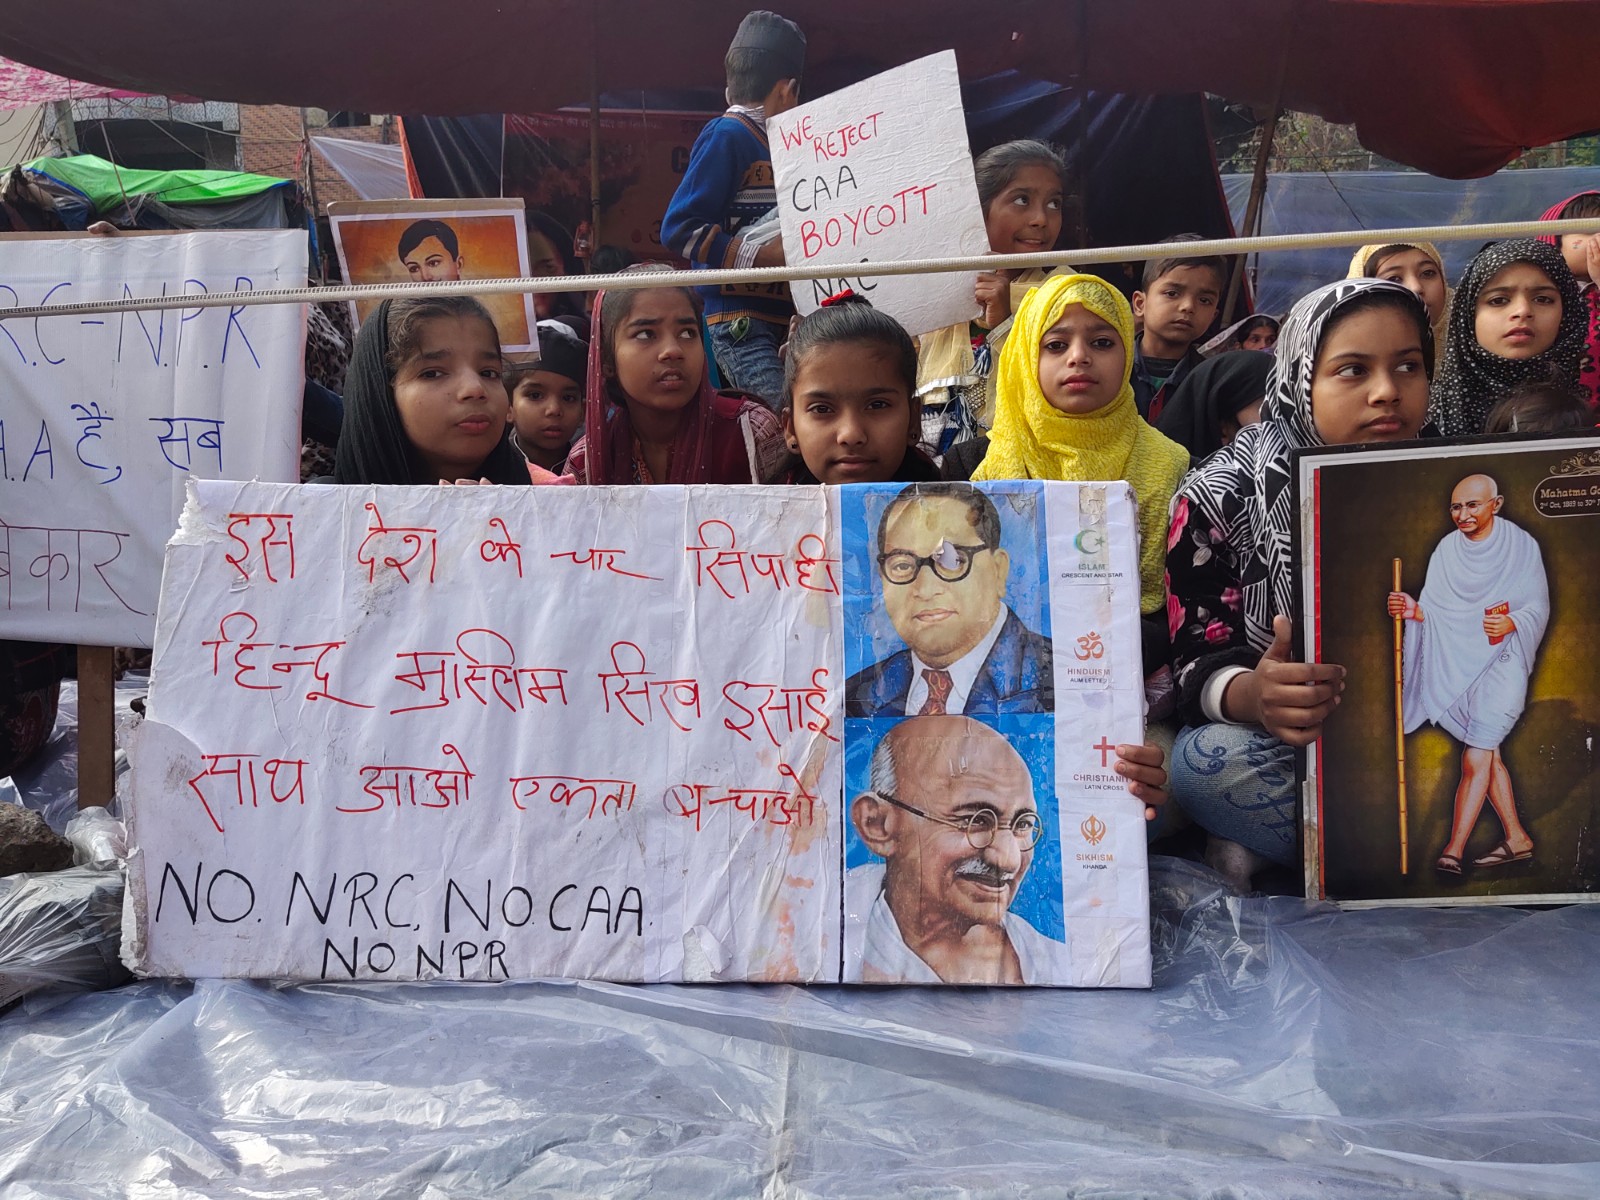 WE
REJECT
CAA
BOYCOTT
NRC
R.C-N.P.R
A.A है, सब
बेकार
इस देश के चार सिपाही
हिन्दू मुस्लिम सिख इसाई
साथ आओ एकता बचाओ
NO. NRC, NO.CAA.
NO NPR
ISLAM
CRESCENT AND STAR
HINDUISM
AUM LETTE
CHRISTIANIT
LATIN CROSS
SIKHISM
KHANDA
Mahatma Ga
2nd Oct, 1869 to 30th
GITA